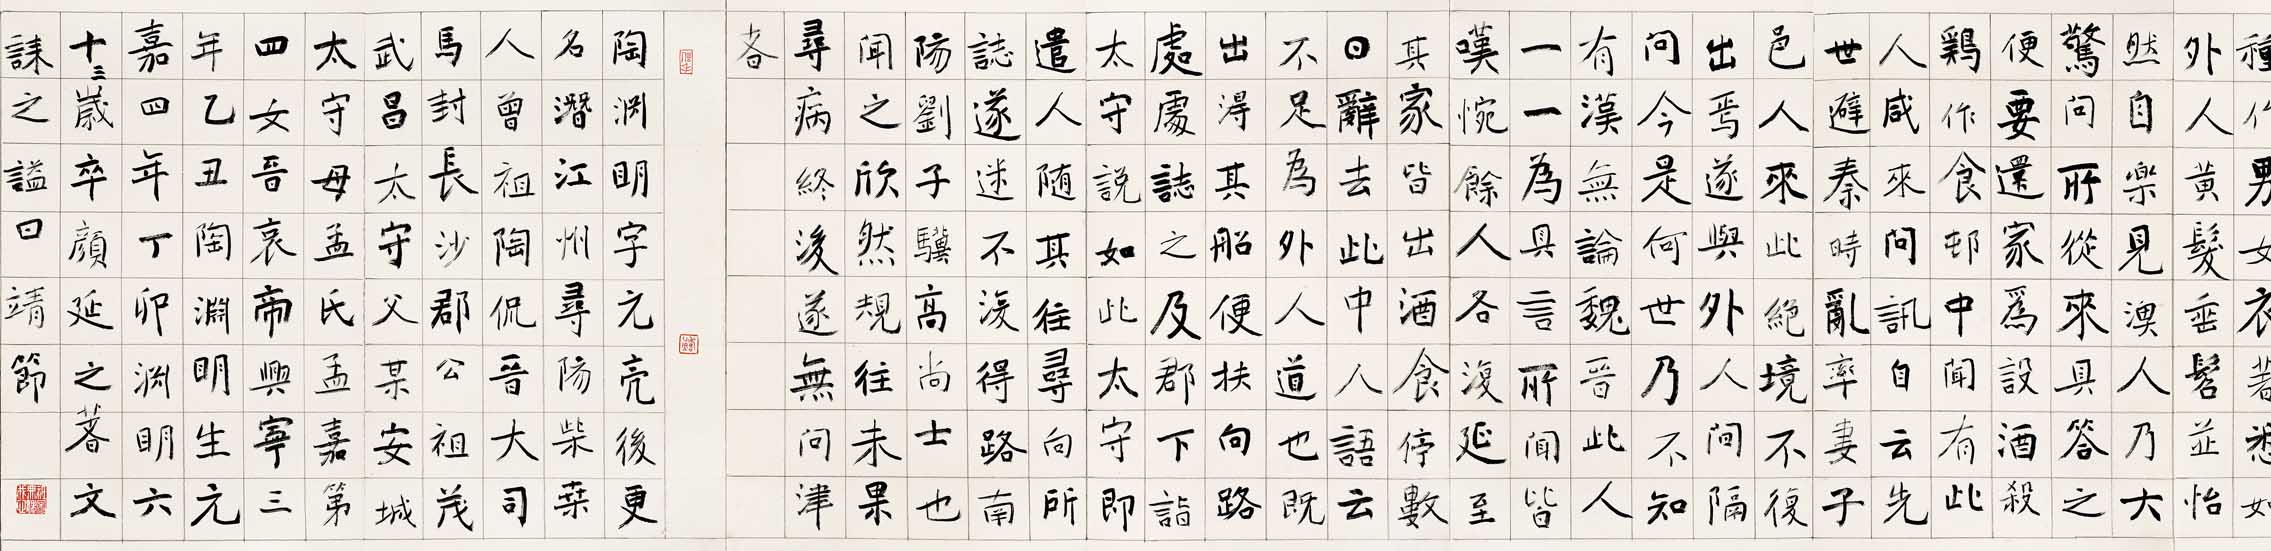 種作男女衣著悉如
外人黃髮垂髫並怡
然自樂見漁人乃大
驚問所從來具答之
便要還家為設酒殺
鷄作食邨中聞有此
人咸來問訊自云先
世避秦時亂率妻子
邑人來此絕境不復
出焉遂與外人間隔
問今是何世乃不知
有漢無論魏晉此人
一一為具言所聞皆
嘆惋餘人各復延至
其家皆出酒食停數
日辭去此中人語云
不足為外人道也既
出得其船便扶向路
處處誌之及郡下詣
太守說如此太守即
遣人隨其往尋向所
誌遂迷不復得路南
陽劉子驥高尚士也
聞之欣然規往未果
尋病終後遂無問津
者
陶淵明字元亮後更
名潛江州尋陽柴桑
人曾祖陶侃晉大司
馬封長沙郡公祖茂
武昌太守父某安城
太守母孟氏孟嘉第
四女晉哀帝興寧三
年乙丑陶淵明生元
嘉四年丁卯淵明六
十三歲卒顏延之著文
誄之謚曰靖節